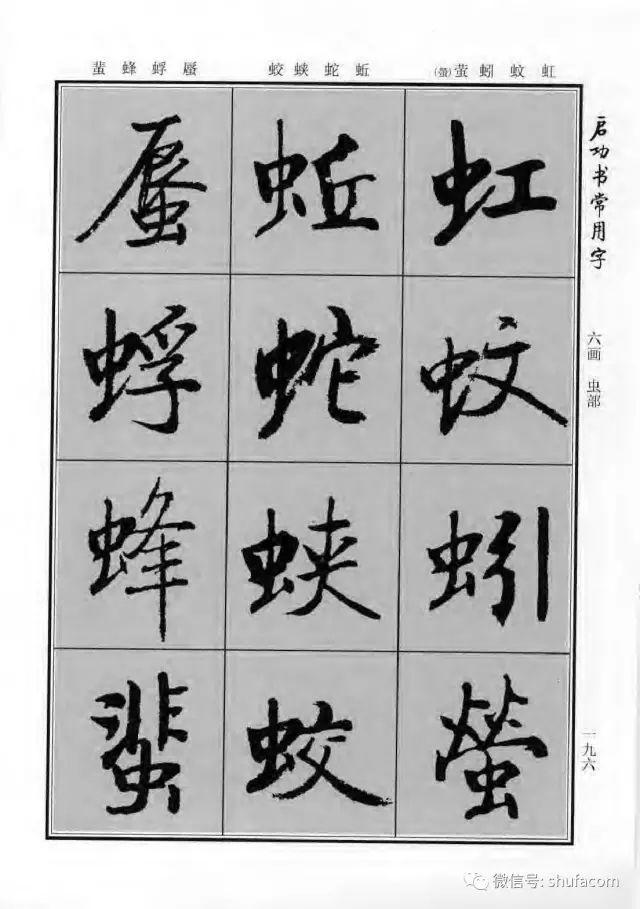 启功书常用字
六画 虫部
一九六
虹 蚊 蚓 萤(螢)
蚯 蛇 蛱 蛟
蜃 蜉 蜂 蜚
虹
蚊
蚓
螢
蚯
蛇
蛱
蛟
蜃
蜉
蜂
蜚
微信号: shufacom